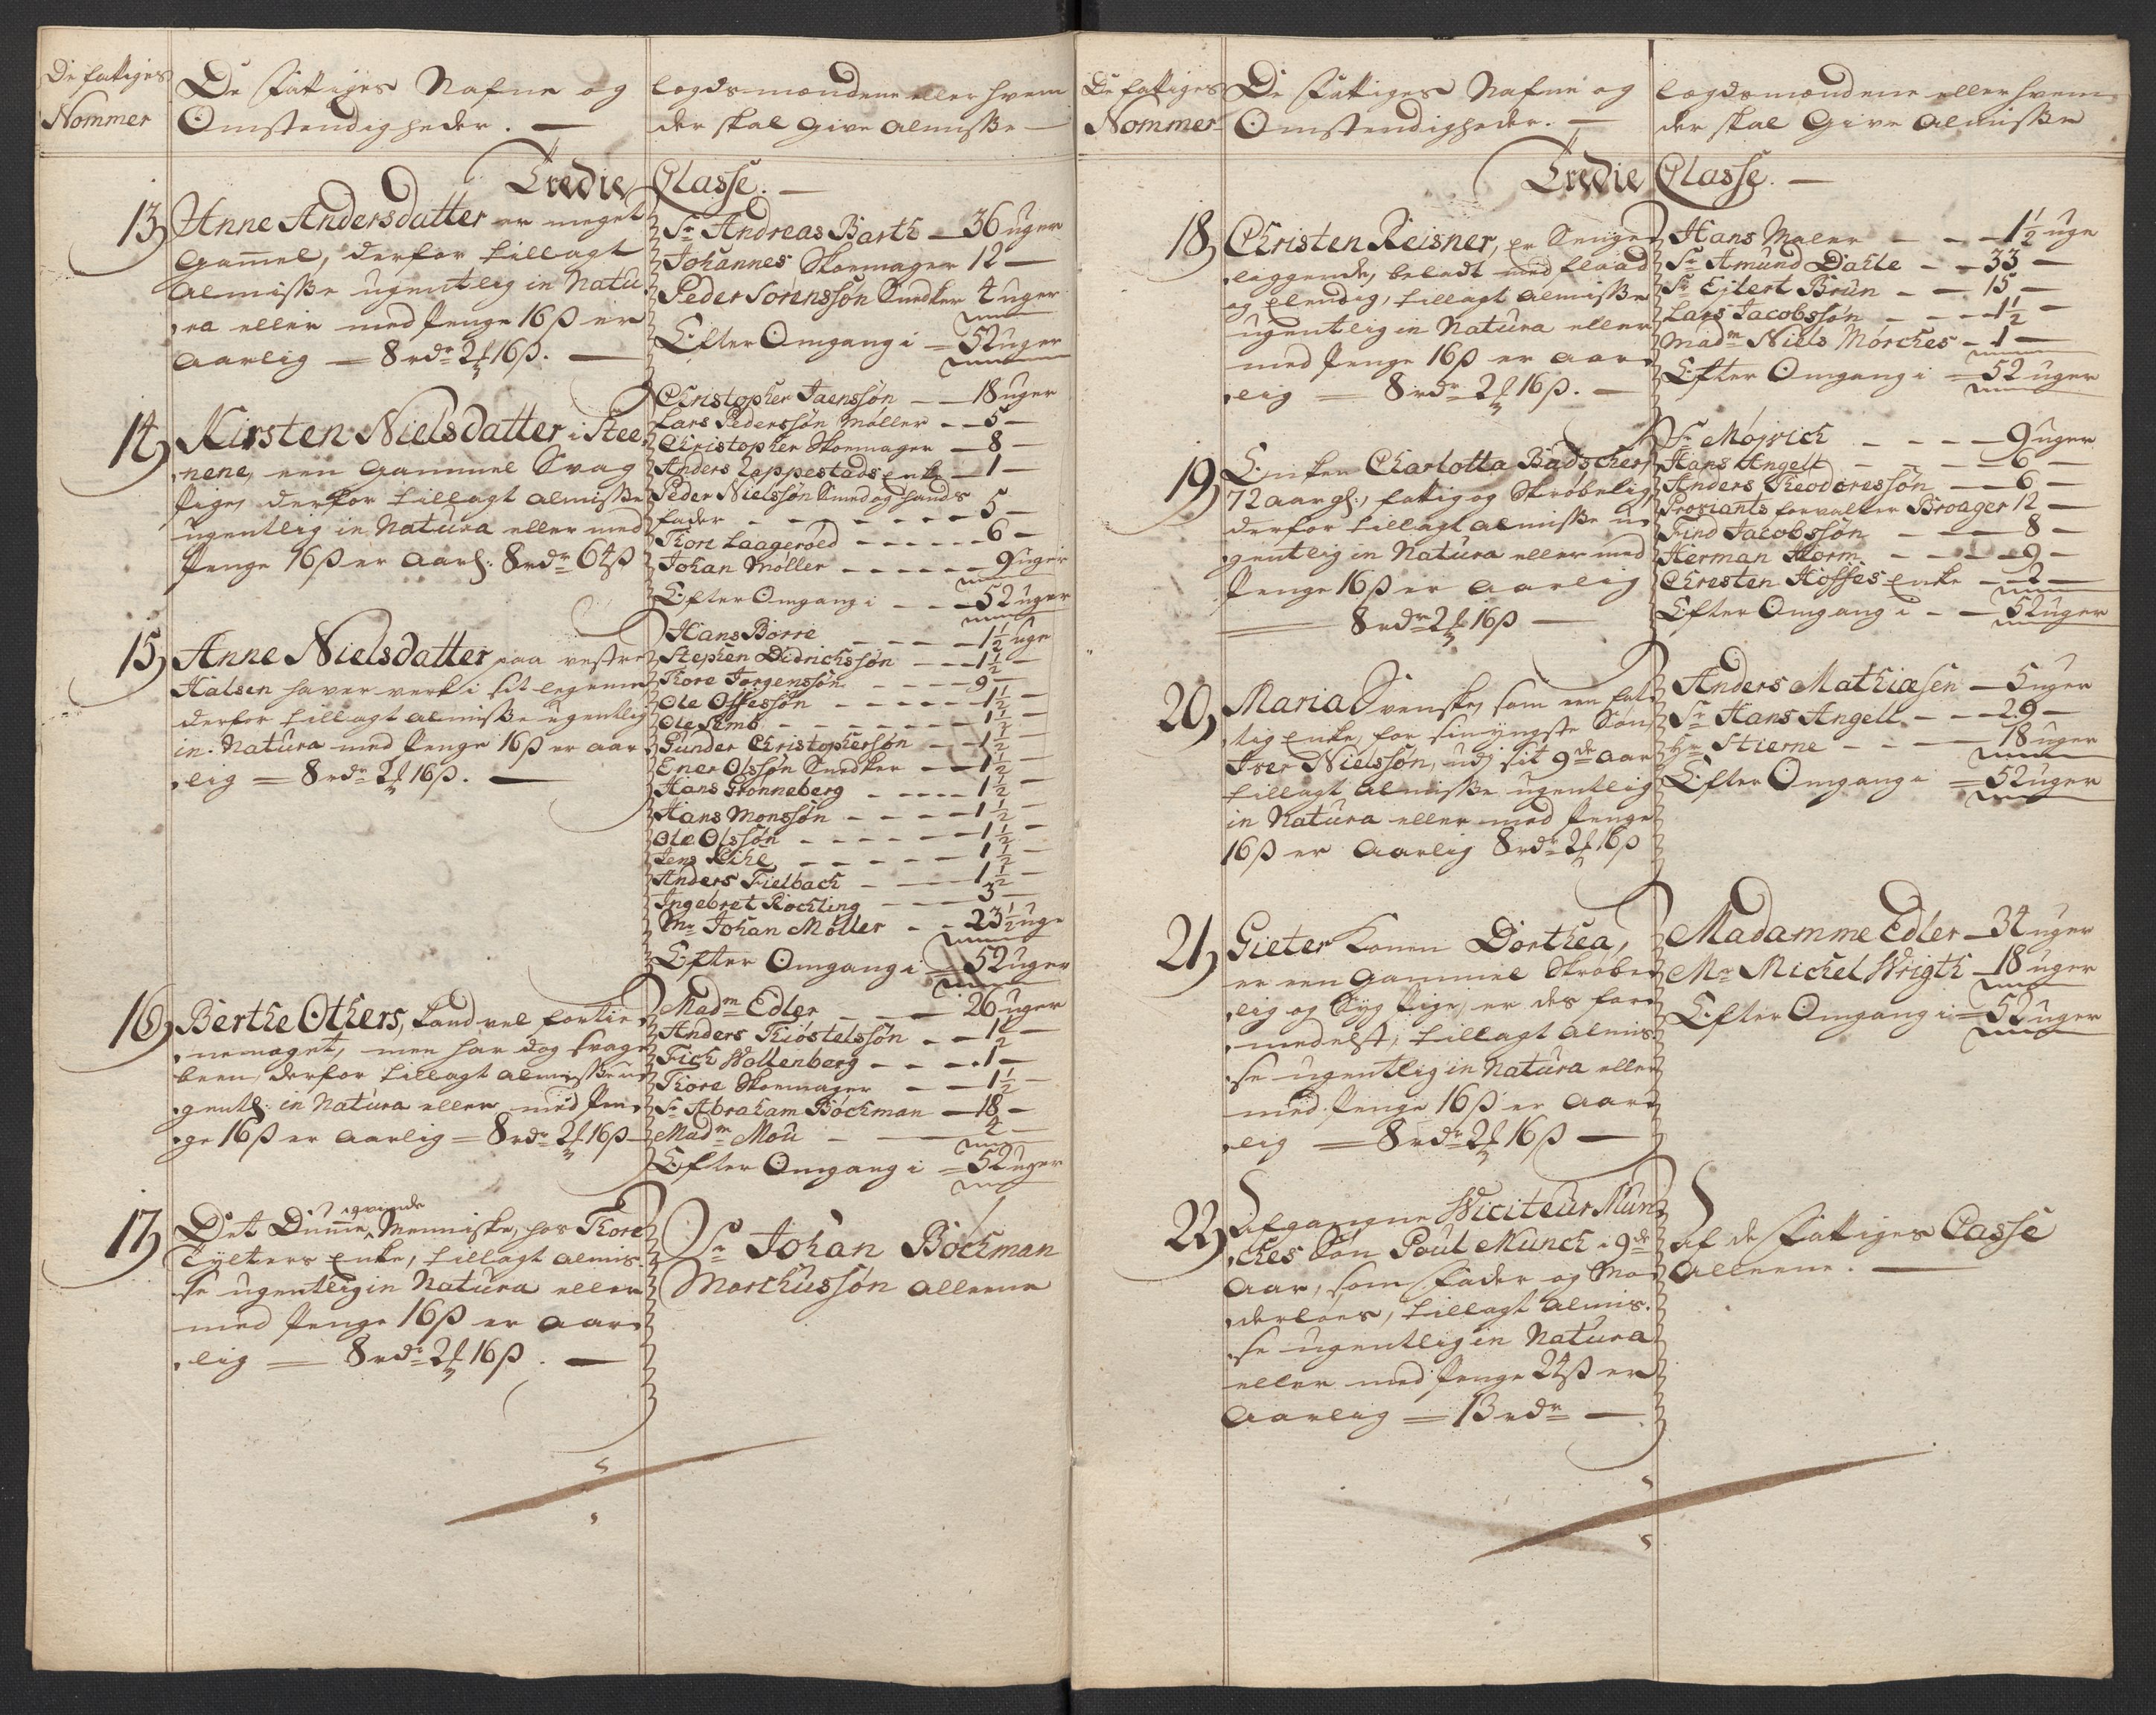 De fattiges
Nommer
De Fattiges Nafne og
Omstendigheder. —
Lægdsmændene eller hvem
der skal give Almisse —
Tredie Classe. —
13, Anne Andersdatter er meget
Gammel, derfor tillagt
Almisse ugentlig in Natu-
ra eller med Penge 16 ß er
Aarlig — 8 rdr 2 ₰ 16 ß. —
Sr Andreas Barth — 36 uger
Johannes Skoemager 12 —
Peder Sørenssøn Snedker 4 uger
Efter Omgang i = 52 uger
14, Kirsten Nielsdatter i Stee-
nene, een Gammel Svag
Pige, derfor tillagt Almisse
ugentlig in Natura eller med
Penge 16 ß er Aarl: 8 rdr 64 ß
Christopher Jaenssøn — 18 uger
Lars Pederssøn Møller — 5 —
Christopher Skoemager — 8 —
Anders Zappestads Enke — 1 —
Peder Nielssøn Smed og hands
fader — 5 —
Tore Laagerøed — 6 —
Johan Møller — 9 uger
Efter Omgang i — 52 uger
15, Anne Nielsdatter paa vestre
Halsen haver verk i sit legeme
derfor tillagt Almisse ugentlig
in Natura med Penge 16 ß er aar-
lig — 8 rdr 2 ₰ 16 ß. —
Hans Børre — 1½ uge
Stephen Didrichssøn — 1½ —
Tore Jørgenssøn — 9 —
Ole Offessøn — 1½ —
Ole Semb — 1½ —
Gunder Christophersøn — 1½ —
Ener Olssøn Snedker — 1½ —
Hans Grønneberg — 1½ —
Hans Monssøn — 1½ —
Ole Olssøn — 1½ —
Jens Kihl — 1½ —
Anders Fielbach — 1½ —
Ingebret Rochling — 3 —
Mr Johan Møller — 23½ uge
Efter Omgang i = 52 uger
16, Berthe Others, kand vel fortie-
ne noget, men har dog svage
been, derfor tillagt Almisse u-
gentl: in Natura eller med Pen-
ge 16 ß er Aarlig = 8 rdr 2 ₰ 16 ß —
Madm Edler — 26 uger
Anders Kiøstelssøn — 1½ —
Fich Wollenberg — 1 —
Tore Skoemager — 1½ —
Sr Abraham Bøckman — 18 —
Madm Mou — 4 —
Efter Omgang i = 52 uger
17, Det Dumme Menniske, hos Tore
Tylters Enke, tillagt Almis-
se ugentlig in Natura eller
med Penge 16 ß er Aar-
lig — 8 rdr 2 ₰ 16 ß. —
Sr Johan Bøckman
Morchussøn alleene
De fattiges
Nommer
De Fattiges Nafne og
Omstendigheder. —
Lægdsmændene eller hvem
der skal Give Almisse
Tredie Classe. —
18, Christen Reisner, er Senge-
liggende, beladt med flaad
og Elendig, tillagt Almisse
ugentlig in Natura eller
med Penge 16 ß er Aar-
lig — 8 rdr 2 ₰ 16 ß. —
Hans Maler — 1½ uge
Sr Amund Dahle — 33 —
Sr Eylert Brun — 15 —
Lars Jacobssøn — 1½ —
Madm Niels Mørches — 1 —
Efter Omgang i = 52 uger
19, Enken Charlotta Badschers,
72 aar gl:, fattig og Skrøbelig
derfor tillagt Almisse u-
gentlig in Natura eller med
Penge 16 ß er Aarlig
8 rdr 2 ₰ 16 ß —
Sr Møjrich — 9 uger
Hans Angell — 6 —
Anders Theodoressøn — 6 —
Proviants forvalter Broager 12 —
Find Jacobssøn — 8 —
Herman Storm — 9 —
Chresten Hoffes Enke — 2 —
Efter Omgang i — 52 uger
20, Maria Svenske, som een fat-
tig Enke, for sin yngste Søn,
Iver Nielssøn, udj sit 9de Aar
tillagt Almisse ugentlig
in Natura eller med Penge
16 ß er Aarlig 8 rdr 2 ₰ 16 ß
Anders Mathiæsen — 5 uger
Sr Hans Angell — 29 —
Hr Stierne — 18 uger
Efter Omgang i = 52 uger
21, Gieter Konen Dorthea,
er een Gammel Skrøbe-
lig og Syg Pige, er des for-
medelst, tillagt Almis-
se ugentlig in Natura eller
med Penge 16 ß er Aar-
lig — 8 rdr 2 ₰ 16 ß —
Madamme Edler — 34 uger
Mr Michel Wrigth — 18 uger
Efter Omgang i = 52 uger
22, Afgangne Viciteur Mun-
ches Søn Poul Munch i 9de
Aar, som Fader og Mo-
derløes, tillagt Almis-
se ugentlig in Natura
eller med Penge 24 ß er
Aarlig — 13 rdr —
Af de Fattiges Casse
Alleene. —